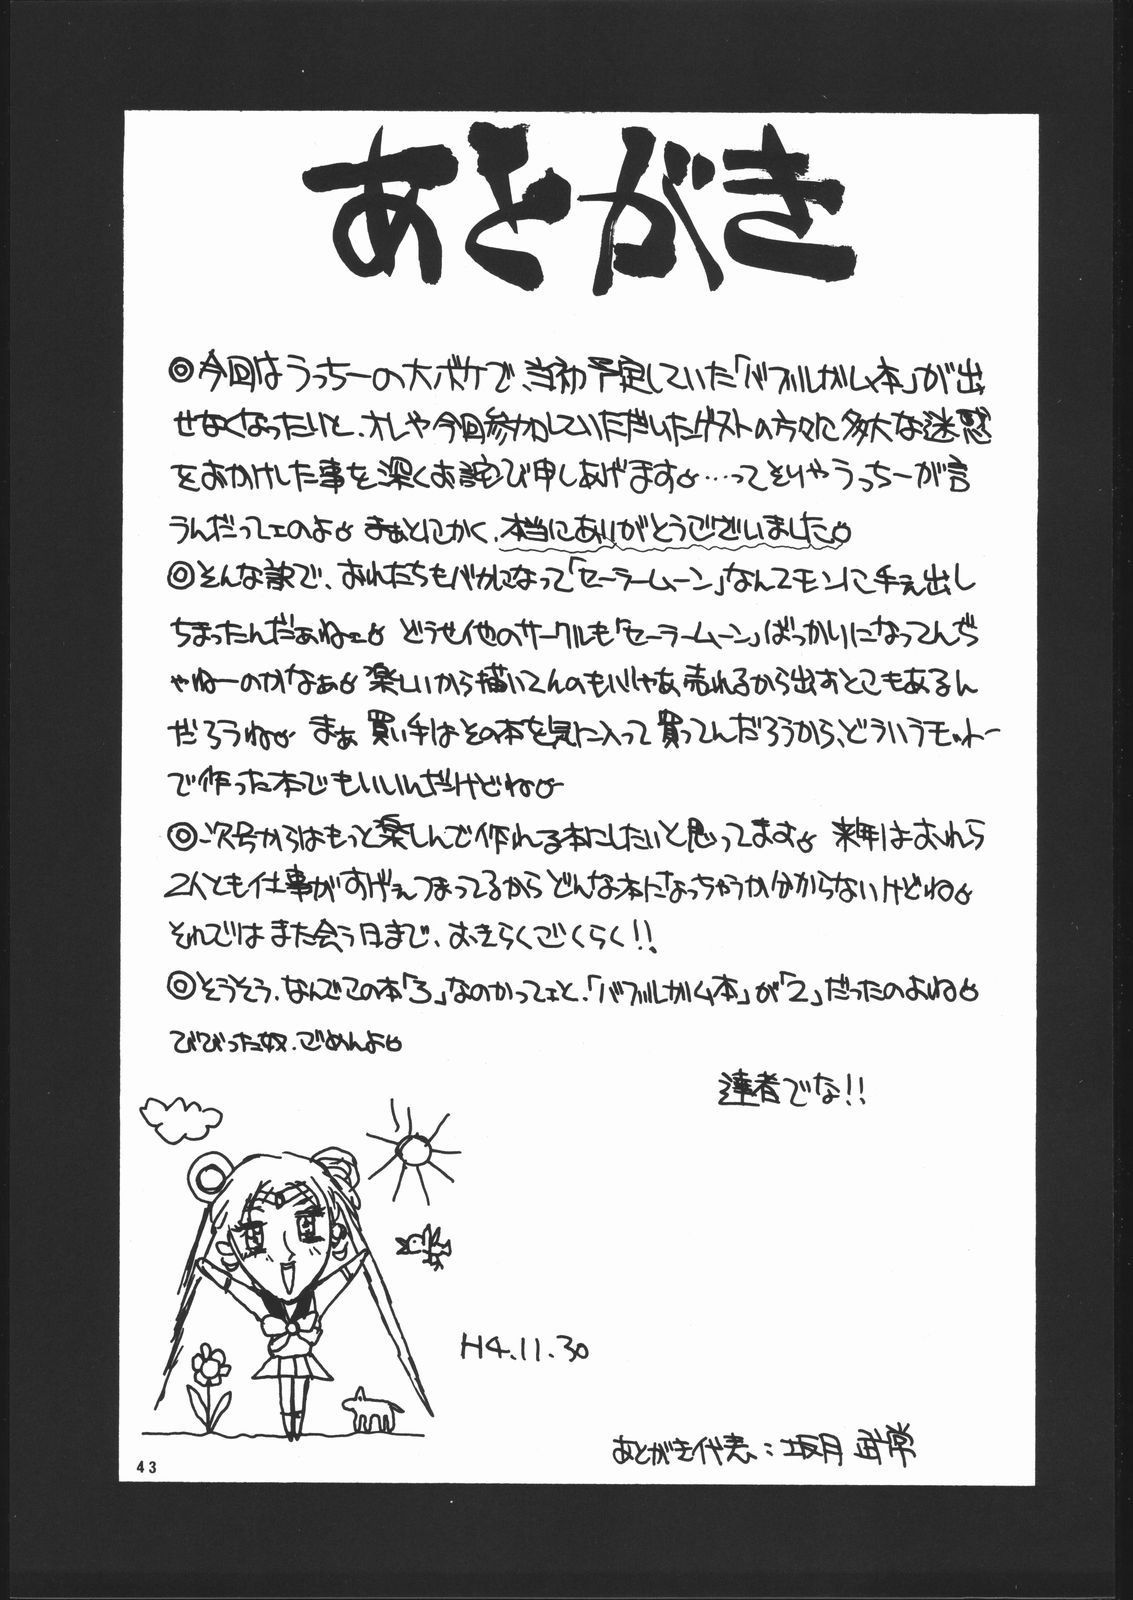 あとがき
◎今回はうっちーの大ボケで、当初予定していた「バブルガム本」が出
せなくなったいと、オレや今回参加していただいたゲストの方々に多大な迷惑
をおかけした事を深くお詫び申しあげます。…ってそりゃうっちーが言
うんだってェのよ。まぁとにかく、本当にありがとうございました。
◎そんな訳で、おれたちもバカになって「セーラームーン」なんてモンに手ぇ出し
ちまったんだぁねェ。どうせ他のサークルも「セーラームーン」ばっかりになってんぢ
ゃねーのかなぁ。楽しいから描いてんのもいじゃあ売れるから出すとこもあるん
だろうね。まぁ買い手はその本を気に入って買ってんだろうから、どういうモ
で作った本でもいいんだけどね。
◎次号からはもっと楽しんで作れる本にしたいと思ってます。来年はおれら
2人とも仕事がすげぇつまってるからどんな本になっちゃうか分からないけどね。
それではまた会う日まで、おきらくごくらく!!
◎そうそう、なんでこの本「3」なのかってェと、「バブルガム本」が「2」だったのよね。
びびった奴、ごめんよ。
達者でな!!
H4.11.30
あとがき代表：坂月 武常
43